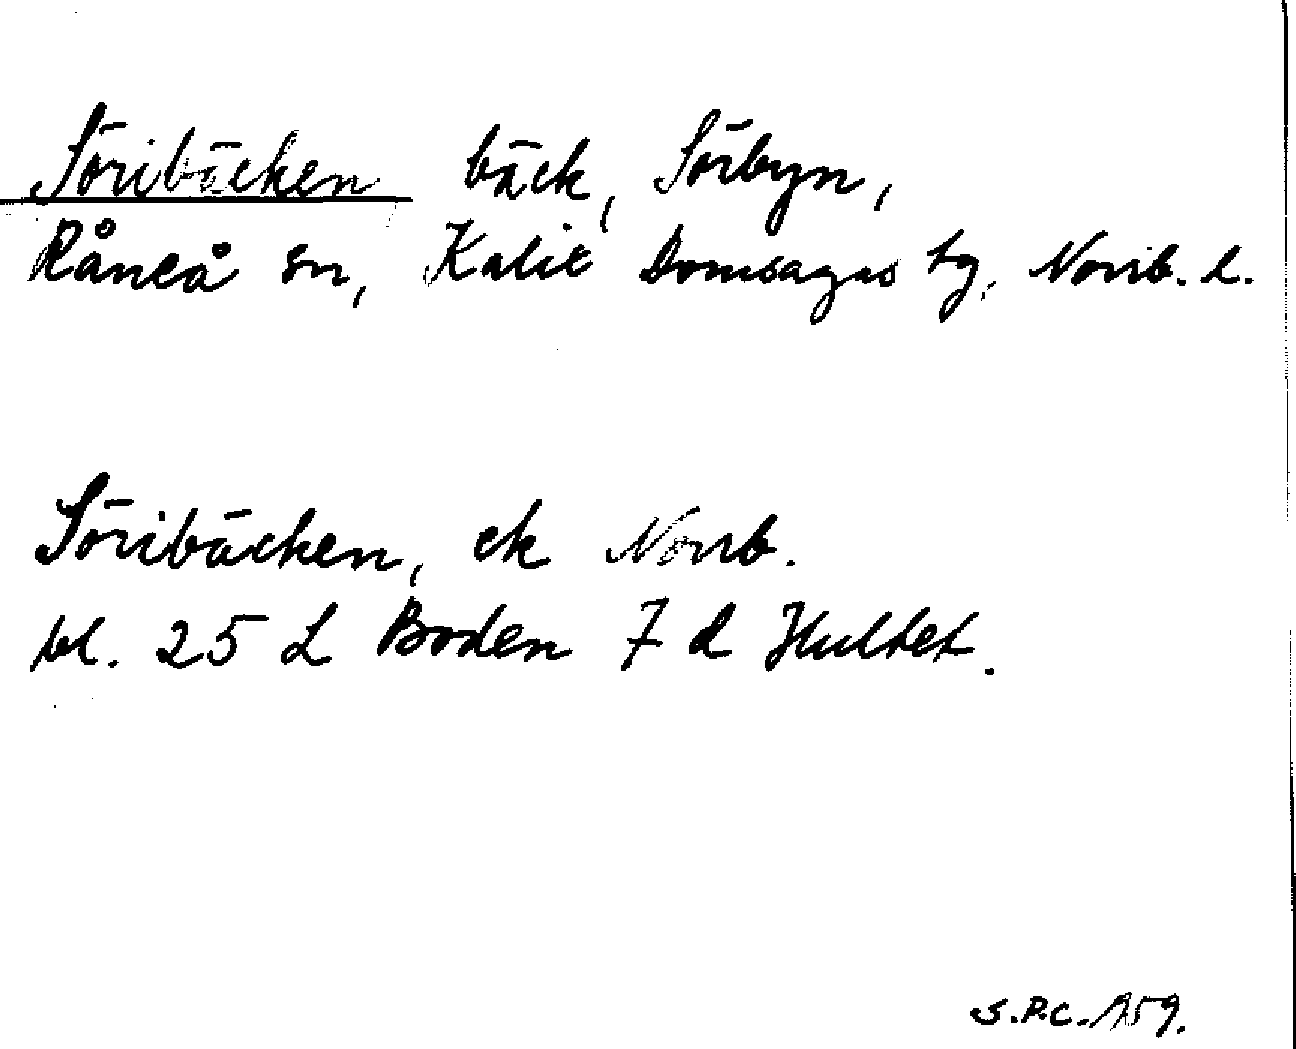 Söribäcken bäck, Sörbyn,
Råneå sn, Kalix Domsagas tg, Norrb. l.
Söribäcken, ek Norrb.
bl. 25 L Boden 7 d Hultet.
S.P.C. 1959.